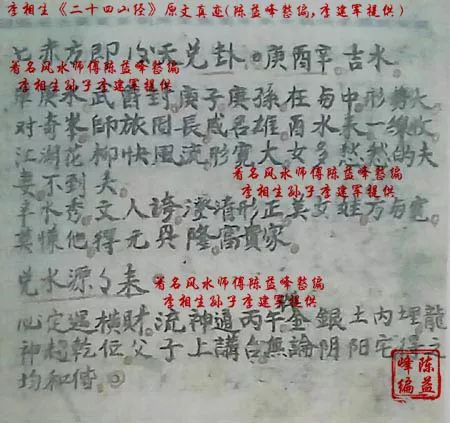 李相生《二十四山经》原文真迹(陈益峰整编,李建军提供)
兑卦。庚酉辛。吉水
著名风水师傅陈益峰整编
李相生孙子李建军提供
庚水武 到。庚子庚孫在 中。形
对奇峯。師旅冏長咸名雄。酉水来一線收
江湖花柳快風流。形寬大。女多愁 的夫
著名风水师傅陈益峰整编
妻不到夫。
李相生孙子李建军提供
辛水秀。文人誇。澄清形正 女 万
莫 他得元 隆富貴家。
兑水源 来
著名风水师傅陈益峰整编
李相生孙子李建军提供
必定遇横財。流神通丙午。金銀土内埋。龍
神起乾位。父子上講台。無論阴阳宅
均和偕。
陈益峰编